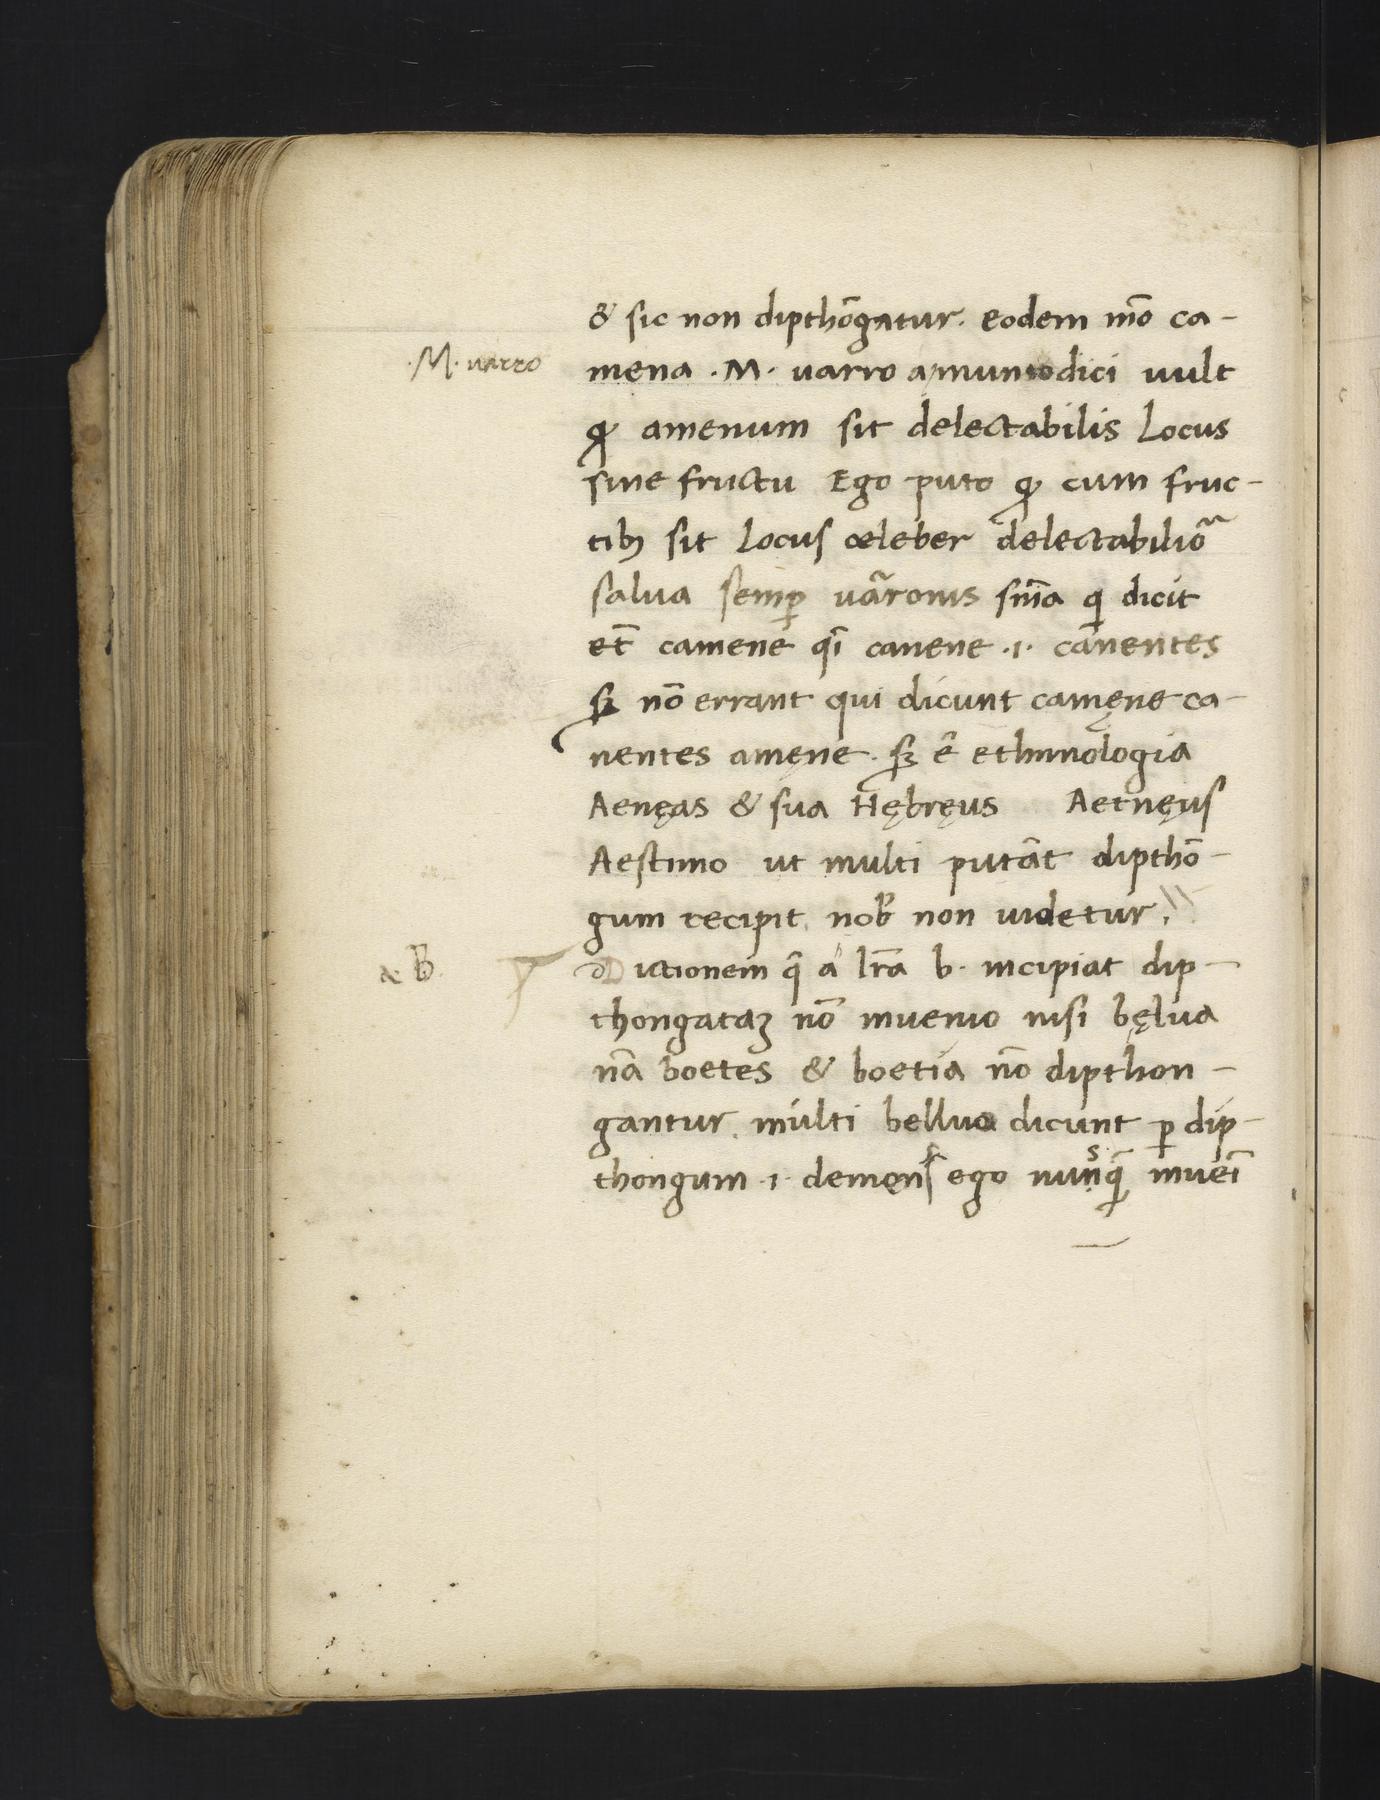 & sic non dipthōgatur. eodem mō ca-
.M. uarro
mena .M. uarro dici uult
ꝙ amenum sit delectabilis Locus
sine fructu Ego puto ꝙ cum fruc-
tibꝫ sit Locus celeber delectabiliōa
salua semꝑ uārronis sn̄ia qͥ dicit
et̄ camene qī canene .i. canentes
sꝫ nō errant qui dicunt camęne ca-
nentes amęne. sꝫ ē ethimologia
Aenęas & sua Hębręus Aetnęus
Aestimo ut multi putāt dipthō-
gum recipit. nob̄ non uidetur.
æ B.
Dictionem q̄ a lr̄a b. incipiat dip-
thongataꝫ nō inuenio nisi bęlua
nā boetes & boetia nō dipthon-
gantur. multi bellua dicunt ꝑ dip-
thongum .i. demens ego nunsq̄ inueī